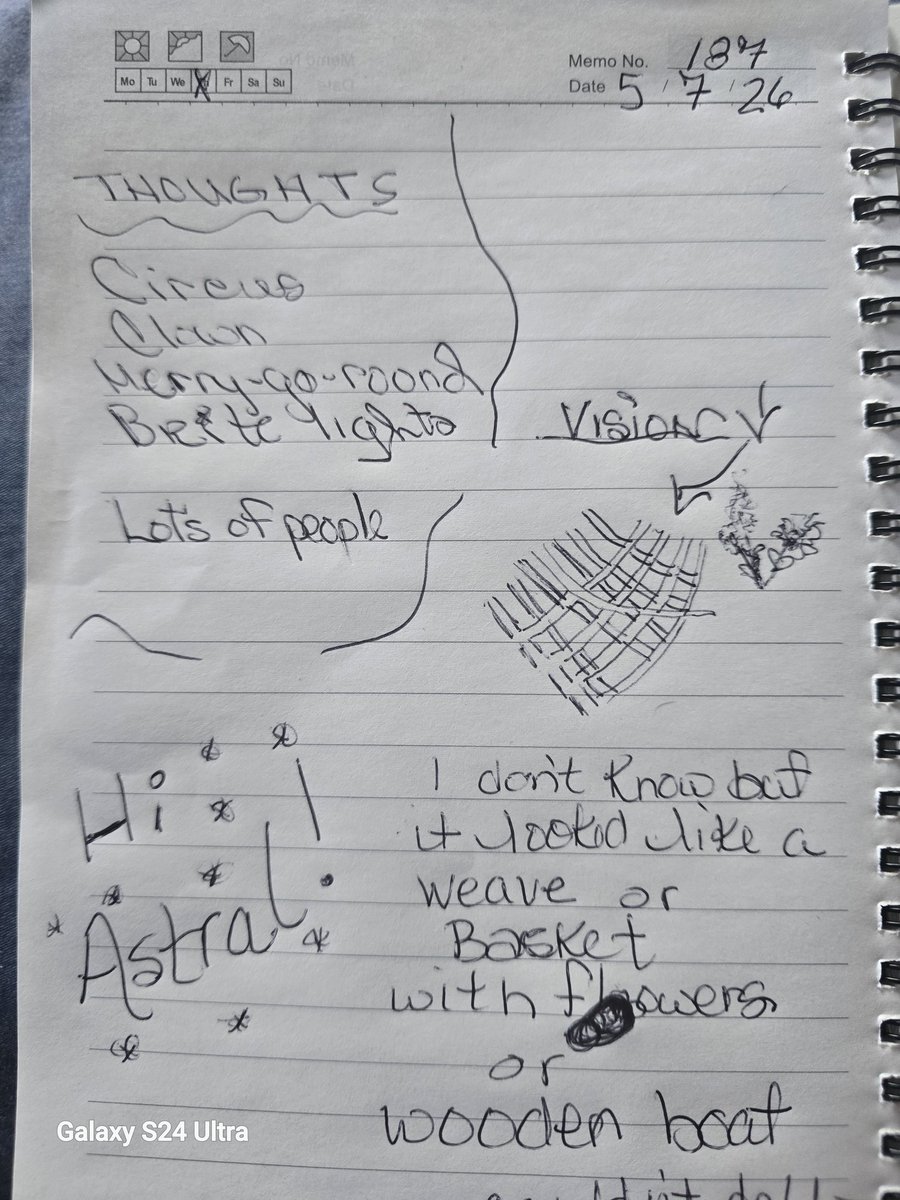 Memo No. 187
Mo Tu We Fr Sa Su
Date 5 / 7 / 26
THOUGHTS
Circus
Clown
Merry-go-round
Brite lights
Vision
Lots of people
Hi !
Astral
I don't know but
it lookd like a
weave or
Basket
with flowers
or
wooden boat
Galaxy S24 Ultra